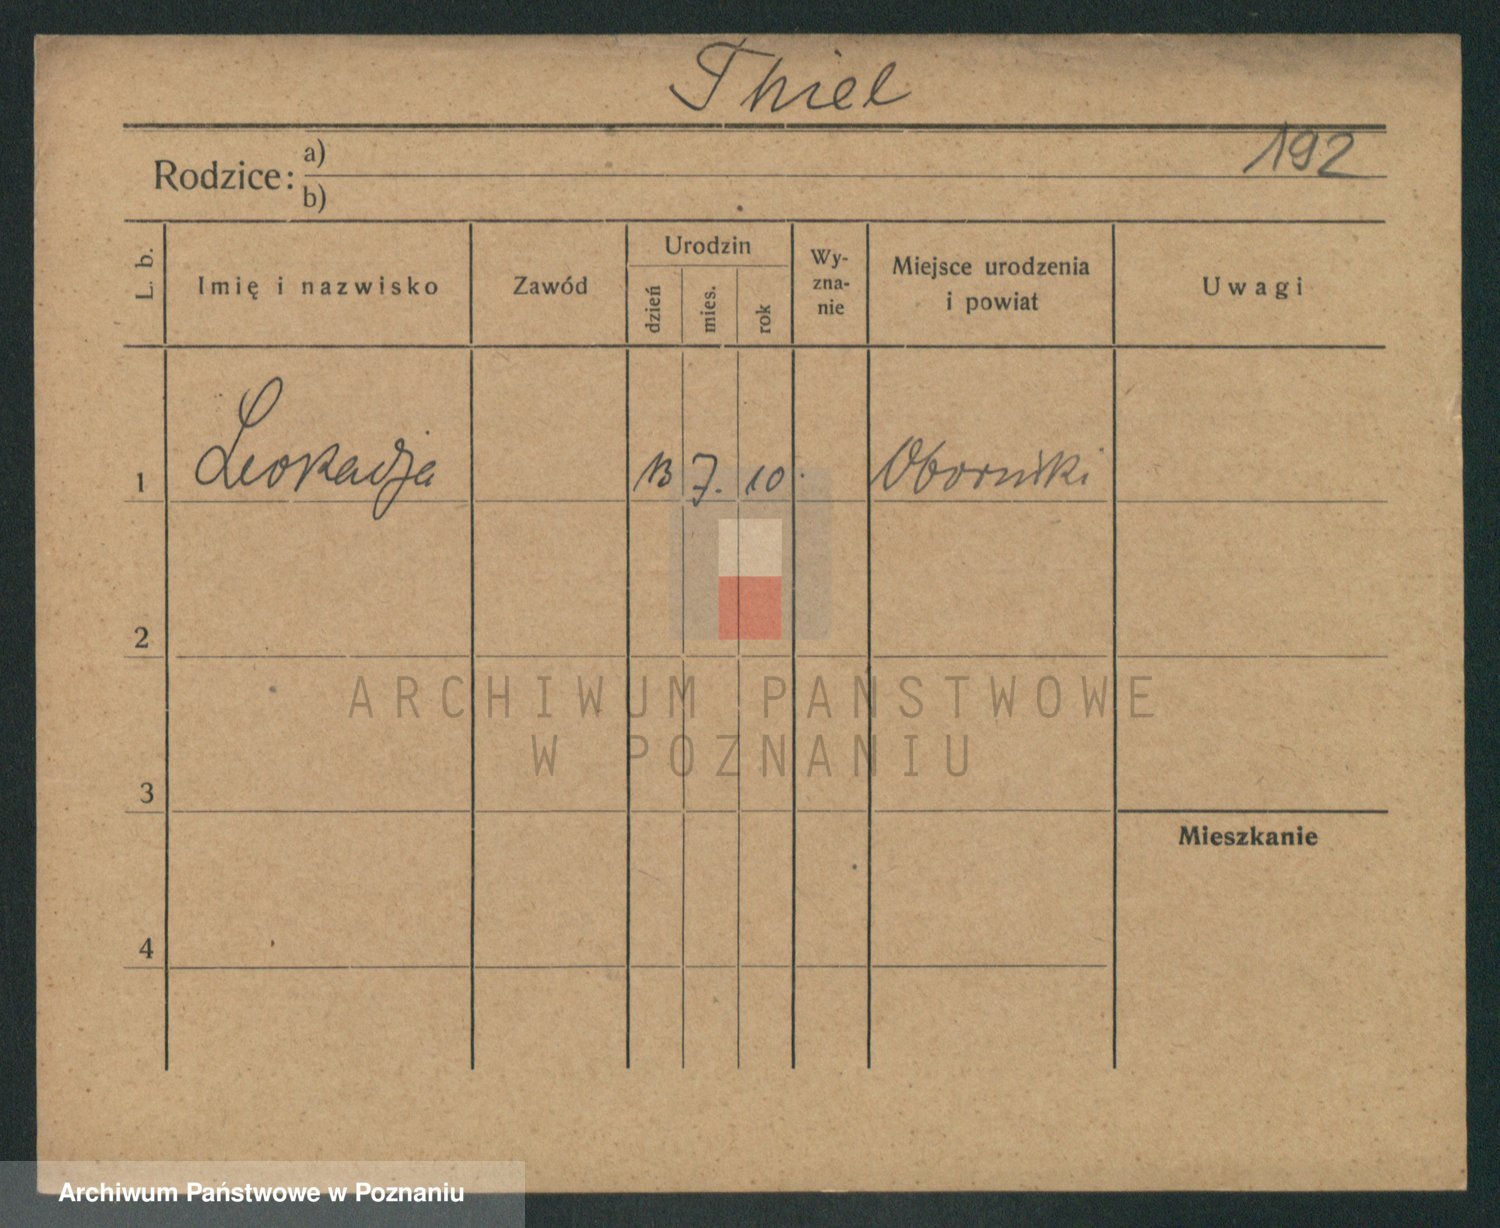 Thiel
192
Rodzice: a)
b)
L. b.
Imię i nazwisko
Zawód
Urodzin
dzień
mies.
rok
Wy-
zna-
nie
Miejsce urodzenia
i powiat
Uwagi
1 Leokadja 13 7. 10. Oborniki
2
ARCHIWUM PAŃSTWOWE
W POZNANIU
3
Mieszkanie
4
Archiwum Państwowe w Poznaniu